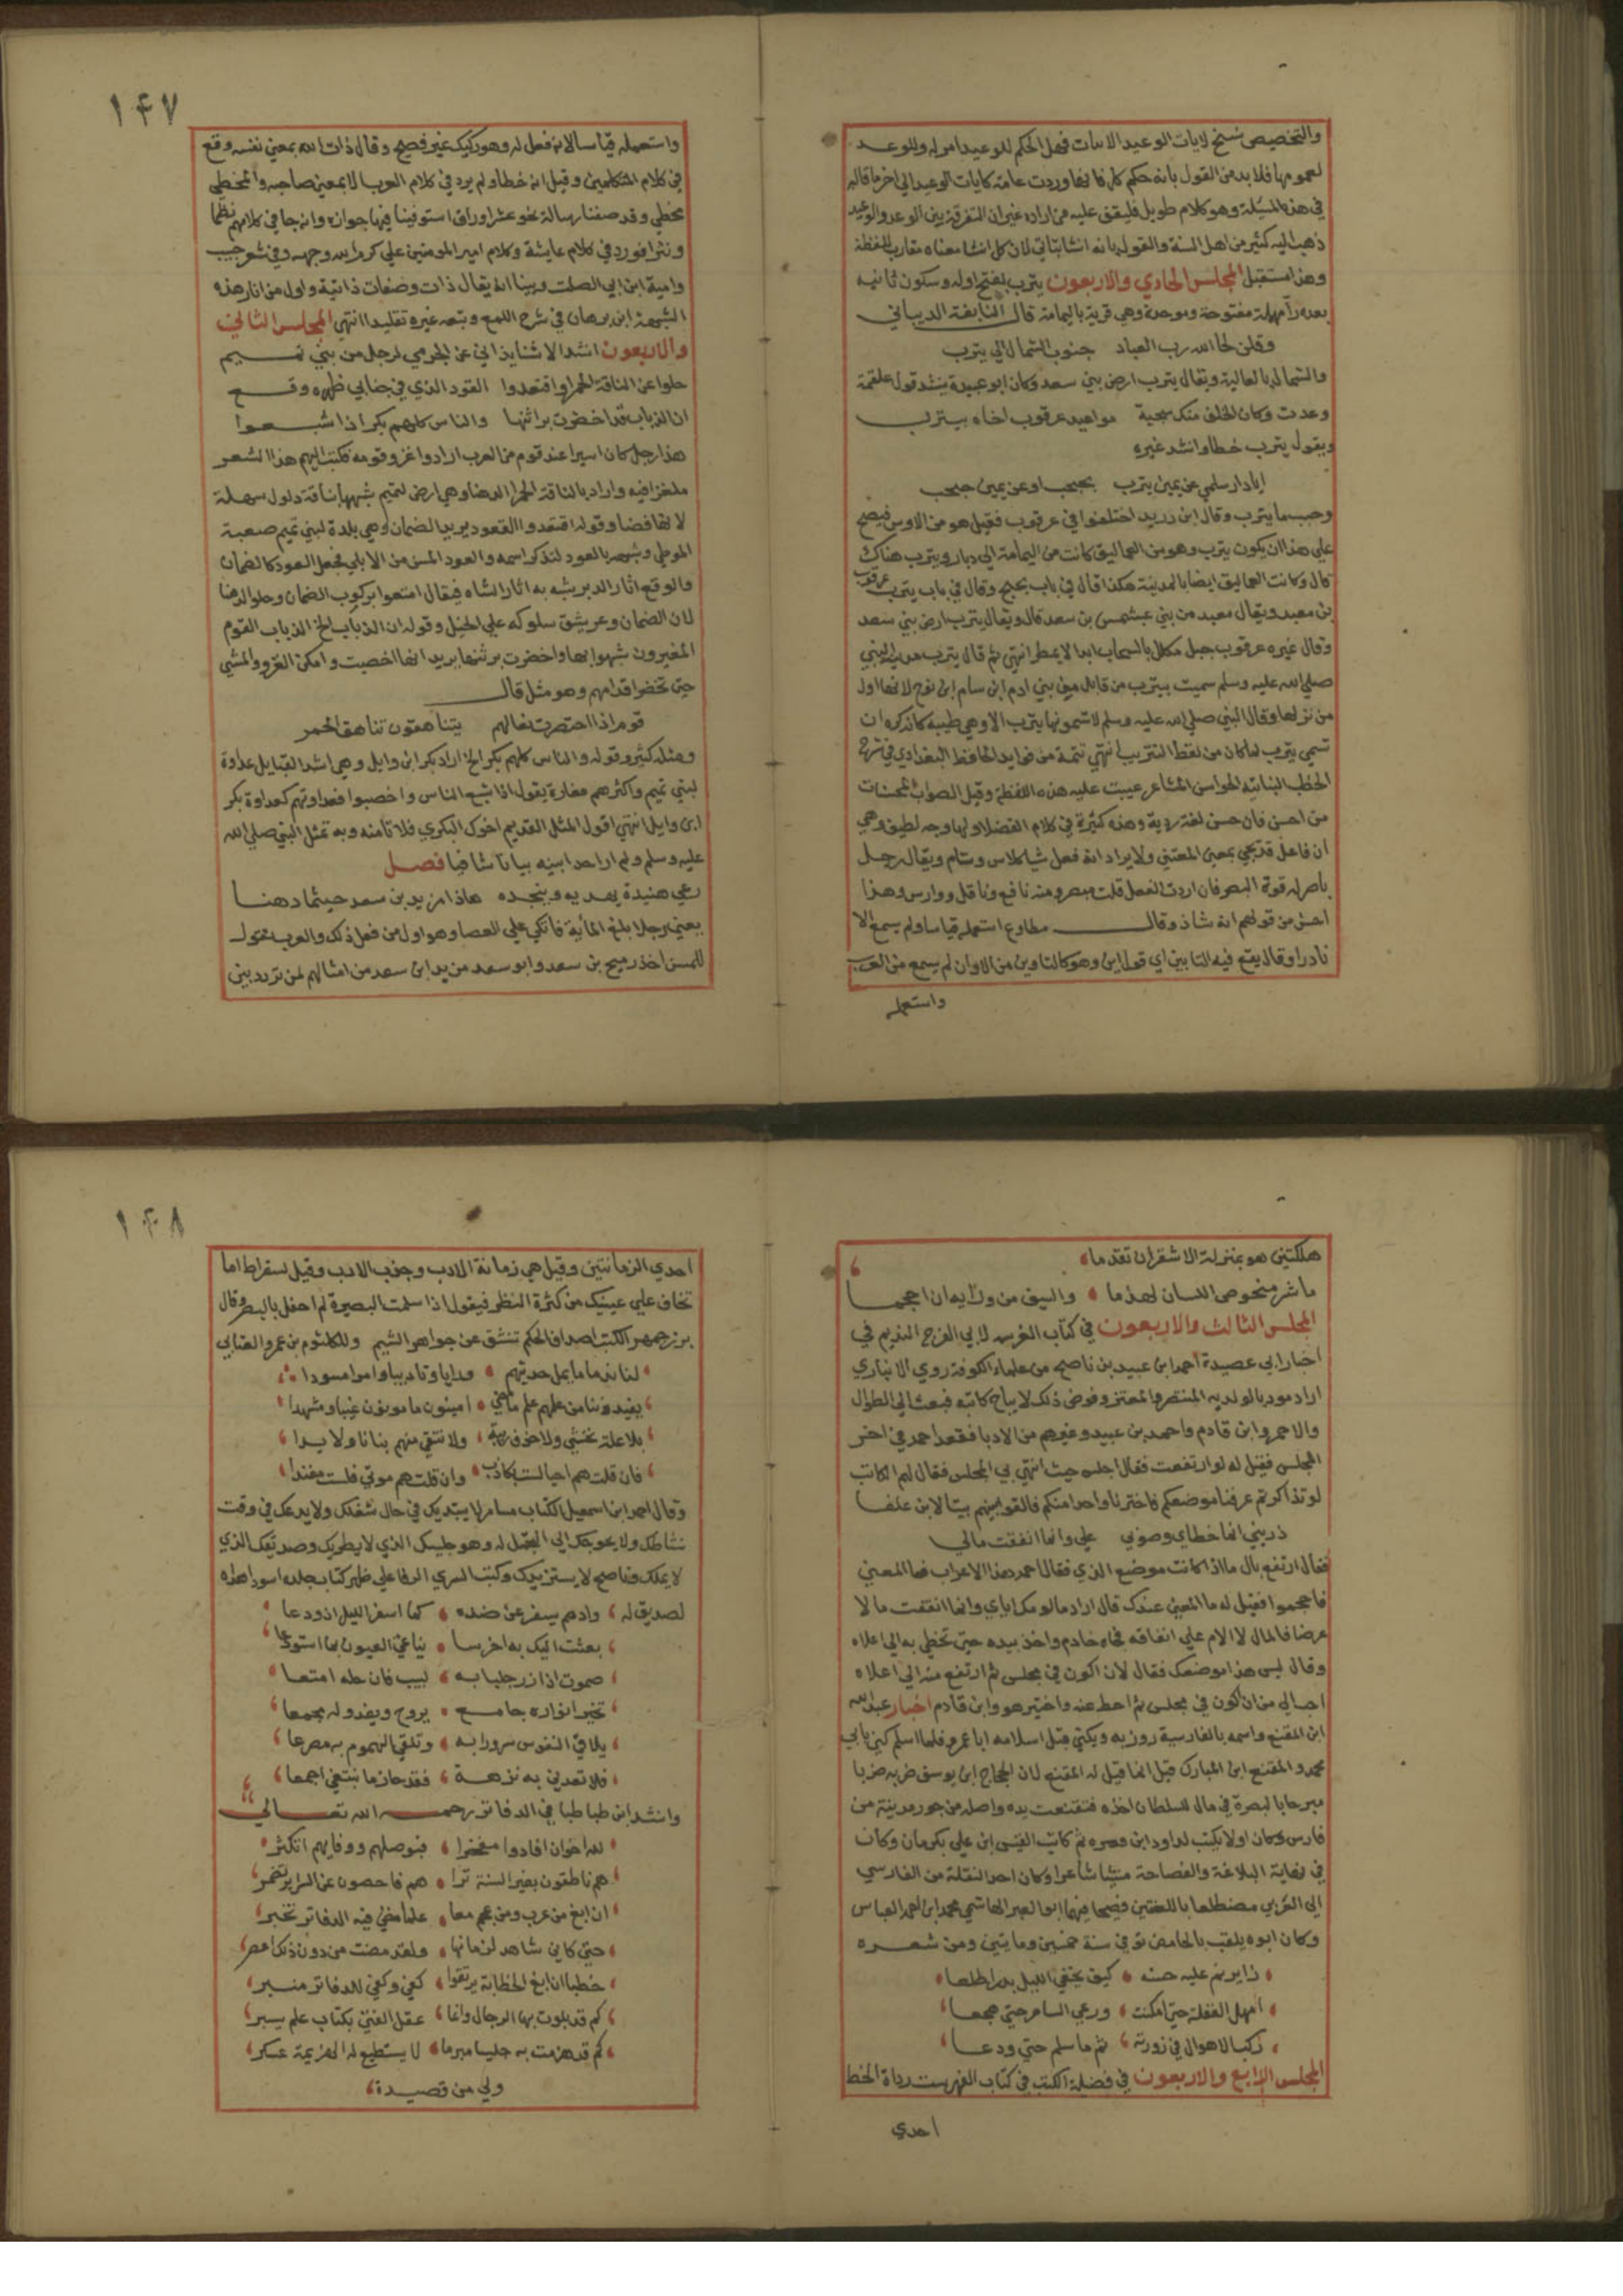 والتخصيص نسخ لايات الوعيد الابيات فهل الحكم للوعيد امر له وللوعد
لعمومها فلا بد من القول بانه حكم كل فانها وردت عامة كايات الوعيد الى اخر ما قاله
في هذه المسئلة وهو كلام طويل فليقف عليه من اراده غير ان التفرقة بين الوعد والوعيد
ذهب اليه كثير من اهل السنة والقول بانه انشا يتاتي لان كل انشا معناه مقارب للفظه
وهذا مستقبل المجلس الحادي والاربعون يترب بفتح اوله وسكون ثانيه
بعده رآ مهملة مفتوحة وموحدة وهي قرية باليمامة قال النابغة الديباني
وقلن لحا الله رب العباد جنوب الشمال الي يترب
والشمال بالعالية ويقال يترب ارض بني سعد وكان ابو عبيدة ينشد قول علقمة
وعدت وكان الخلف منك سجية مواعيد عرقوب اخاه بيترب
ويقول يترب خطا وانشد غيره
ايا دار سلمي عن يمين يترب بجبجب او عن يمين جبجب
وحسبما يترب وقال ابن دريد اختلفوا في عرقوب فقيل هو من الاوس فيصح
علي هذا ان يكون يثرب وهو من العماليق كانت من اليمامة الي دبار ويترب هناك
قال وكانت العماليق ايضا بالمدينة هكذا قال في باب بجبج وقال في باب يترب عرقوب
بن معبد ويقال معبد من بني عبشمس بن سعد قال ويقال يترب ارض بني سعد
وقال غيره عرقوب جبل مكلل بالسحاب ابدا لا يمطر انتهي ثم قال يترب مدينة النبي
صلي الله عليه وسلم سميت بيترب من قابل من بني ادم ابن سام ابن نوح لانها اول
من نزلها وقال النبي صلي الله عليه وسلم لا تسمونها يترب الا وهي طيبه كانه كره ان
تسمي يترب لما كان من لفظ التتريب انتهي تتمة من فوايد الحافظ البغدادي في شرح
الخطب النباتية الحواس المشاعر عيبت عليه هذه اللفظة وقيل الصواب المحسات
من احس فان حس لغة ردية وهذه كثيرة في كلام الفضلا ولها وجه لطيف وهي
ان فاعل قد يجي بمعني المعتني ولا يراد انه فعل شيا كلاس وشام ويقال رجل
باصر له قوة البصر فان اردت الفعل قلت مبصر ومنه نافع وناقل ووارس وهذا
احسن من قولهم انه شاذ وقال مطاوع استعمله قياسا ولم يسمع الا
نادرا وقال يقع فيه التابين اي قول ابن وهو كالتاوين من الاوان لم يسمع من العرب
واستعمله
١٤٧
واستعمله قياسا لانه فعل له وهو ركيك غير فصيح وقال ذات الله بمعني نفسه وقع
في كلام المتكلمين وقيل انه خطا ولم يرد في كلام العرب الا بمعني صاحبه والمخطي
مخطي وقد صنفنا رسالة نحو عشر اوراق استوفينا فيها جوازه وانه جا في كلامهم نظما
ونثرا فورد في كلام عايشة وكلام امير المومنين علي كرم الله وجهه وفي شعر حبيب
وامية ابن ابي الصلت وبينا انه يقال ذات وصفات ذاتية واول من اثار هذه
الشبهة ابن برهان في شرح اللمع وتبعه غيره تقليدا انتهي المجلس الثاني
والاربعون انشد الاشنانداني عن الجرمي لرجل من بني تميم
حلوا عن الناقة الحمرا واقتعدوا العود الذي في جنابي ظهره وقع
ان الذياب قد اخضرت براثنها والناس كلهم بكر اذا شبعوا
هذا رجل كان اسيرا عند قوم من العرب ارادوا غزو قومه فكتب اليهم هذا الشعر
ملغزا فيه واراد بالناقة الحمرا الدهنا وهي ارض لتميم شبهها بناقة ذلول سهلة
لانها فضا وقوله اقتعدوا القعود يريد الضمان وهي بلدة لبني تميم صعبة
الموطي وشبهه بالعود لتذكر اسمه والعود المسن من الابل فجعل العود كالضمان
والوقع اثار الدبر يشبه به اثار الشاه فيقال امتعوا بركوب الضمان وحلوا الدهنا
لان الضمان وعر يشق سلوكه علي الخيل وقوله ان الذياب الخ الذياب القوم
المغيرون شبهوا بها واخضرت برثنها يريد انها اخصبت وامكن الغزو والمشي
حتي تخضر اقدامهم وهو مثل قال
قوم اذا اخضرت نعالهم يتناهقون تناهق الحمر
ومثله كثير وقوله والناس كلهم بكر الخ اراد بكر ابن وايل وهي اشد القبايل عداوة
لبني تميم واكثرهم مغارة يقول اذا شبع الناس واخصبوا فعداوتهم كعداوة بكر
ابن وايل انتهي اقول المثل القديم اخوك البكري فلا تامنه وبه تمثل النبي صلي الله
عليه وسلم ولم ار احدا بينه بيانا شافيا فصل
رعي هنيدة يهديه وينجده هاذا من يد بن سعد حيثما دهنا
يعني رجلا بلغ المأية فاتكي علي العصا وهو اول من فعل ذلك والعرب تقول
للمسن اخذ رميح بن سعد وابو سعد من يد ابن سعد من امثالهم لمن تردد بين
هلكتين هو بمنزلة الاشقر ان تقدما
ما شر منحوص اللسان لهذما والسيف من ورآيه ان احجما
المجلس الثالث والاربعون في كتاب الفهرسه لابي الفرج النديم في
اخبار ابي عصيدة احمد ابن عبيد بن ناصح من علماء الكوفة روي الانباري
اراد مودبا لولديه المنتصر والمعتز وفوض ذلك لايتاح كاتبه فبعث الي الطوال
والاحمر وابن قادم واحمد بن عبيد وغيرهم من الادبا فقعد احمد في اخر
المجلس فقيل له لو ارتفعت فقال اجلس حيث انتهي بي المجلس فقال لهم الكاتب
لو تذاكرتم عرفنا موضعكم فاخترنا واحدا منكم فالقوا بينهم بيتا لابن علفا
ذريني انما خطاي وصوبي علي وانما انفقت مالي
فقال ارتفع بال ماا اذا كانت موضع الذي فقال احمد هذا الاعراب فما المعني
فاحجموا فقيل له ما المعني عندك قال اراد ما لومك اياي وانما انفقت ما لا
عرضا فالمال لا الام علي انفاقه فجاه خادم واخذ بيده حتي تخطي به الي اعلاه
وقال ليس هذا موضعك فقال لان اكون في مجلس ثم ارتفع منه الي اعلاه
احب الي من ان اكون في مجلس ثم احط عنه واختير هو وابن قادم اخبار عبد الله
ابن المقنع واسمه بالفارسية روزبه ويكني قبل اسلامه ابا عمرو فلما اسلم كني بابي
محمد والمقنع ابن المبارك قيل انما قيل له المقنع لان الحجاج ابن يوسف ضربه ضربا
مبرحا بالبصرة في مال للسلطان اخذه فتقنعت يده واصله من جور مدينة من
فارس وكان اولا يكتب لداود ابن هبيره ثم كاتب الفيسي ابن علي بكرمان وكان
في نهاية البلاغة والفصاحة منشيا شاعرا وكان احد النقلة من الفارسي
الي العربي مضطلعا باللغتين فصيحا فيهما ابو العبر الهاشمي محمد ابن احمد العباس
وكان ابوه يلقب بالحامض توفي في سنة خمسين ومايتين ومن شعره
زاير نم عليه حسنه كيف يخفي الليل بدرا طلعا
امهل الغفلة حتي امكنت ورعي السامر حتي هجعا
ركب الاهوال في زورته ثم ما سلم حتي ودعا
المجلس الرابع والاربعون في فضيلة الكتب في كتاب الفهرست رداة الخط
احدي
١٤٨
احدي الزمانتين وقيل هي زمانة الادب وجذب الادب وقيل لسقراط اما
تخاف علي عينيك من كثرة النظر فيقول اذا سلمت البصيرة لم احفل بالبصر وقال
بزرجمهر الكتب اصداف الحكم تنشق عن جواهر الشيم وللكلثوم بن عمرو العتابي
لنا ندما ما يمل حديثهم
يفيدوننا من علمهم علم ما مضي امينون مامونون غيبا ومشهدا
بلا علة تخشي ولا خوف ريبة ولا نتقي منهم بنانا ولا يدا
فان قلت هم احيا لست بكاذب وان قلت هم موتي فلست مفندا
وقال احمد ابن اسمعيل الكتاب مسامر لا يبتديك في حال شغلك ولا يدعك في وقت
نشاطك ولا يحوجك الي التجمل له وهو جليسك الذي لا يطريك وصديقك الذي
لا يملك وناصح لا يستزيدك وكتب السري الرفا علي ظهر كتاب جلده اسود اهداه
لصديق له وادهم يسفر عن ضده كما اسفر الليل اذ ودعا
بعثت اليك به اخرسا يناغي العيون بما استودعا
صموت اذا زر جلبابه لبيب فان حله امتعا
تخير انواره جامع يروح ويغدو له مجمعا
يلاقي النفوس سرورا به وتلقي الهموم به مصرعا
فلا تعدلن به نزهة فقد حاز ما نبتغي اجمعا
وانشد ابن طباطبا في الدفاتر رحمه الله تعالي
لله اخوان افادوا مفخرا فبوصلهم ووفايهم اتكثر
هم ناطقون بغير السنة ترا هم فاحصون عن السراير تضمر
ان ابغ من عرب ومن عجم معا علما مضي فيه الدفاتر تخبر
حتي كاني شاهد لزمانها ولقد مضت من دون ذلك اعصر
خطبا ان ابغ الخطابة يرتقوا كفي وكفي للدفاتر منبر
كم قد بلوت بها الرجال وانما عقل الفتي بكتاب علم يسبر
كم قد هزمت به جليسا مبرما لا يستطيع له الهزيمة عسكر
ولي من قصيدة